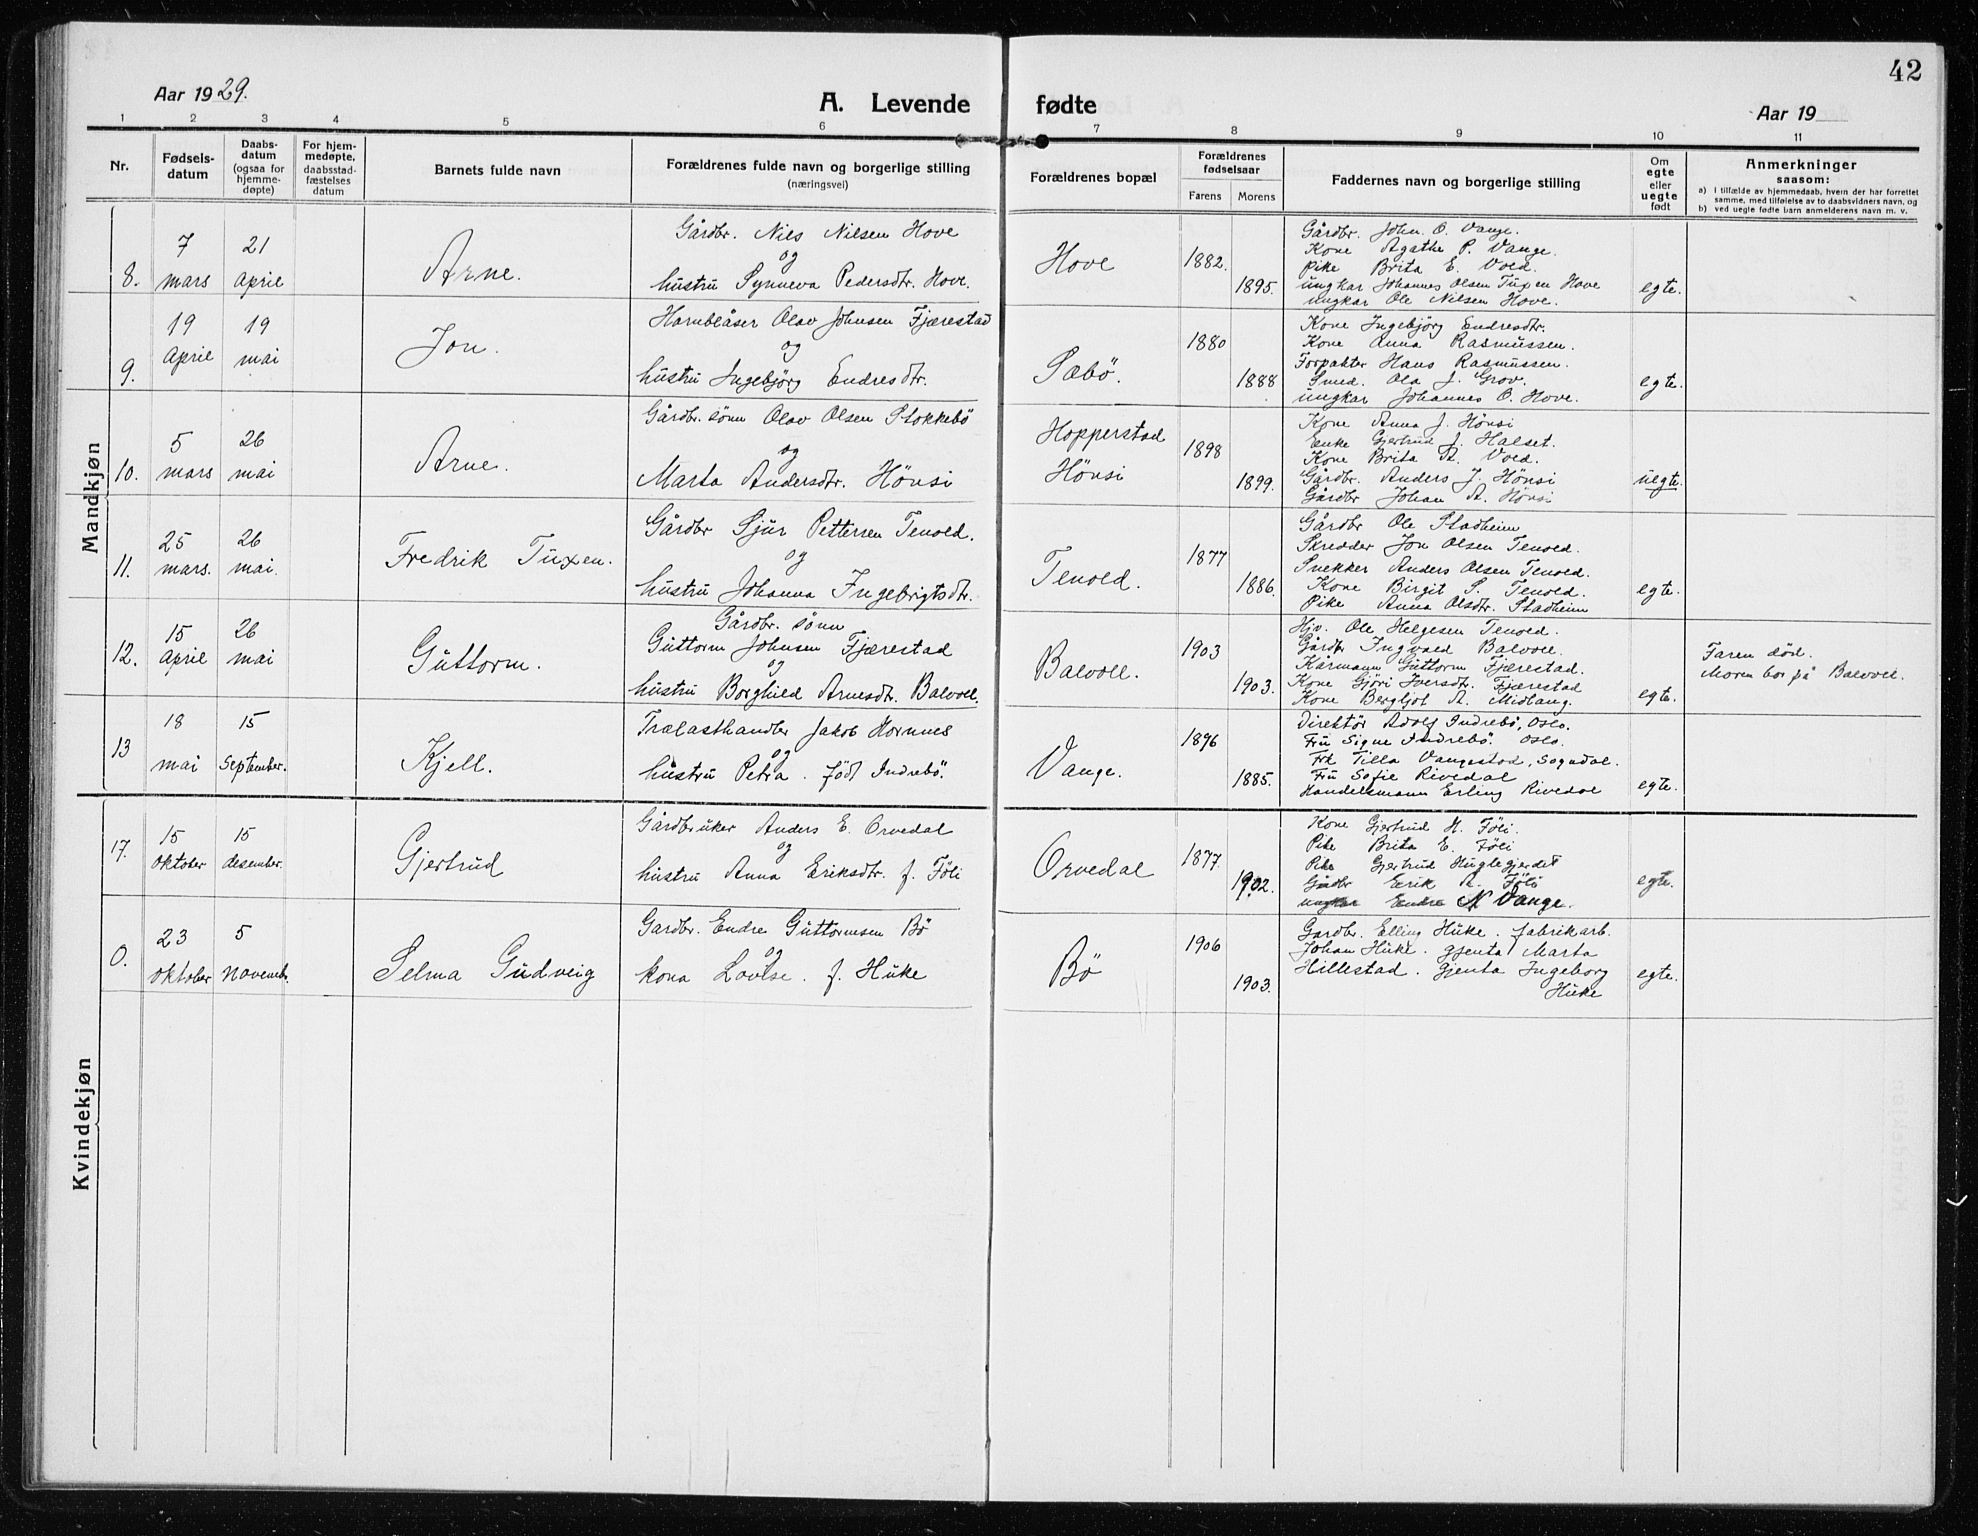 42
Aar 1929.
A. Levende fødte
Aar 19
1 2 3 4 5 6 7 8 9 10 11
Nr.
Fødsels-
datum
Daabs-
datum
(ogsaa for
hjemme-
døpte)
For hjem-
medøpte,
daabsstad-
fæstelses
datum
Barnets fulde navn
Forældrenes fulde navn og borgerlige stilling
(næringsvei)
Forældrenes bopæl
Forældrenes
fødselsaar
Farens Morens
Faddernes navn og borgerlige stilling
Om
egte
eller
uegte
født
Anmerkninger
saasom:
a) I tilfælde av hjemmedaab, hvem der har forrettet
samme, med tilføielse av to daabsvidners navn, og
b) ved uegte fødte barn anmelderens navn m. v.
Mandkjøn
8.
7
mars
21
april
Arne.
Gårdbr. Nils Nilsen Hove
og
hustru Synneva Pedersdtr. Hove.
Hove
1882.
1895.
Gårdbr. John. O. Vange.
Kone Agathe P. Vange.
Pike Brita E. Voed.
ungkar Johannes Olsen Tuxen Hove
ungkar Ole Nilsen Hove.
egte.
9.
19
april
19
mai
Jon.
Hornblåser Olav Johnsen Fjærestad
og
hustru Ingebjörg Endresdtr.
Sæbö.
1880
1888
Kone Ingebjörg Endresdtr.
Kone Anna Rasmussen.
Forpakter Hans Rasmussen.
Smed. Ola J. Grov.
ungkar Johannes O. Hove.
egte.
10.
5
mars
26
mai
Arne.
Gårdbr. sönn Olav Olsen Stokkebö
og
Marta Andersdtr. Hönsi
Hopperstad
Hönsi
1898
1899.
Kone Anna J. Hönsi
Enke Gjertrud J. Halset.
Kone Brita A. Voed.
Gårdbr. Anders J. Hönsi
Gårdbr Johan A. Hönsi
uegte.
11.
25
mars.
26
mai.
Fredrik Tuxen.
Gårdbr Sjur Pettersen Tenold.
og
hustru Johanna Ingebrigtsdtr.
Tenold.
1877
1886.
Gårdbr Ole Stadheim
Skredder Jon Olsen Tenold.
Snekker Anders Olsen Tenold.
Kone Birgit S. Tenold.
Pike Anna Olsdtr. Stadheim
egte.
12.
15
april
26
mai
Guttorm.
Gårdbr. sönn
Guttorm Johnsen Fjærestad
og
hustru Borghild Arnesdtr. Balvoll.
Balvoll.
1903
1903.
Hjv. Ole Helgesen Tenold.
Gårdbr Ingvald Balvoll.
Kårmann Guttorm Fjærestad.
Kone Gjöri Iversdtr. Fjærestad
Kone Bergljot A. Midlang.
egte.
Faren död.
Moren bor på Balvoll.
13
18
mai
15
september.
Kjell.
Trælasthandler Jakob Hornnes
og
hustru Petra. født Indrebö.
Vange.
1896
1885.
Direktör Adolf Indrebö, Oslo.
Fru Signe Indrebö. Oslo.
Frk Tilla Vangestad, Sogndal.
Fru Sofie Rivedal
Handelsmann Erling Rivedal
egte.
Kvindekjøn
17.
15
oktober
15
desember.
Gjertrud
Gårdbruker Anders E. Orvedal
og
hustru Anna Eriksdtr. f. Föli
Orvedal
1877.
1902.
Kone Gjertrud H. Föli.
Pike Brita E. Föli
Pike Gjertrud Huglegjerdet
Gårdbr Erik A. Föli
ungkar Endre N Vange.
egte.
0.
23
oktober
5
novembr.
Selma Gudveig
Gardbr. Endre Guttormsen Bö
og
kona Lovise. f. Huke
Bö
1906
1903.
Gardbr. Elling Huke. fabrikarb.
Johan Huke. gjenta Marta
Hillestad. gjenta Ingeborg
Huke
egte.